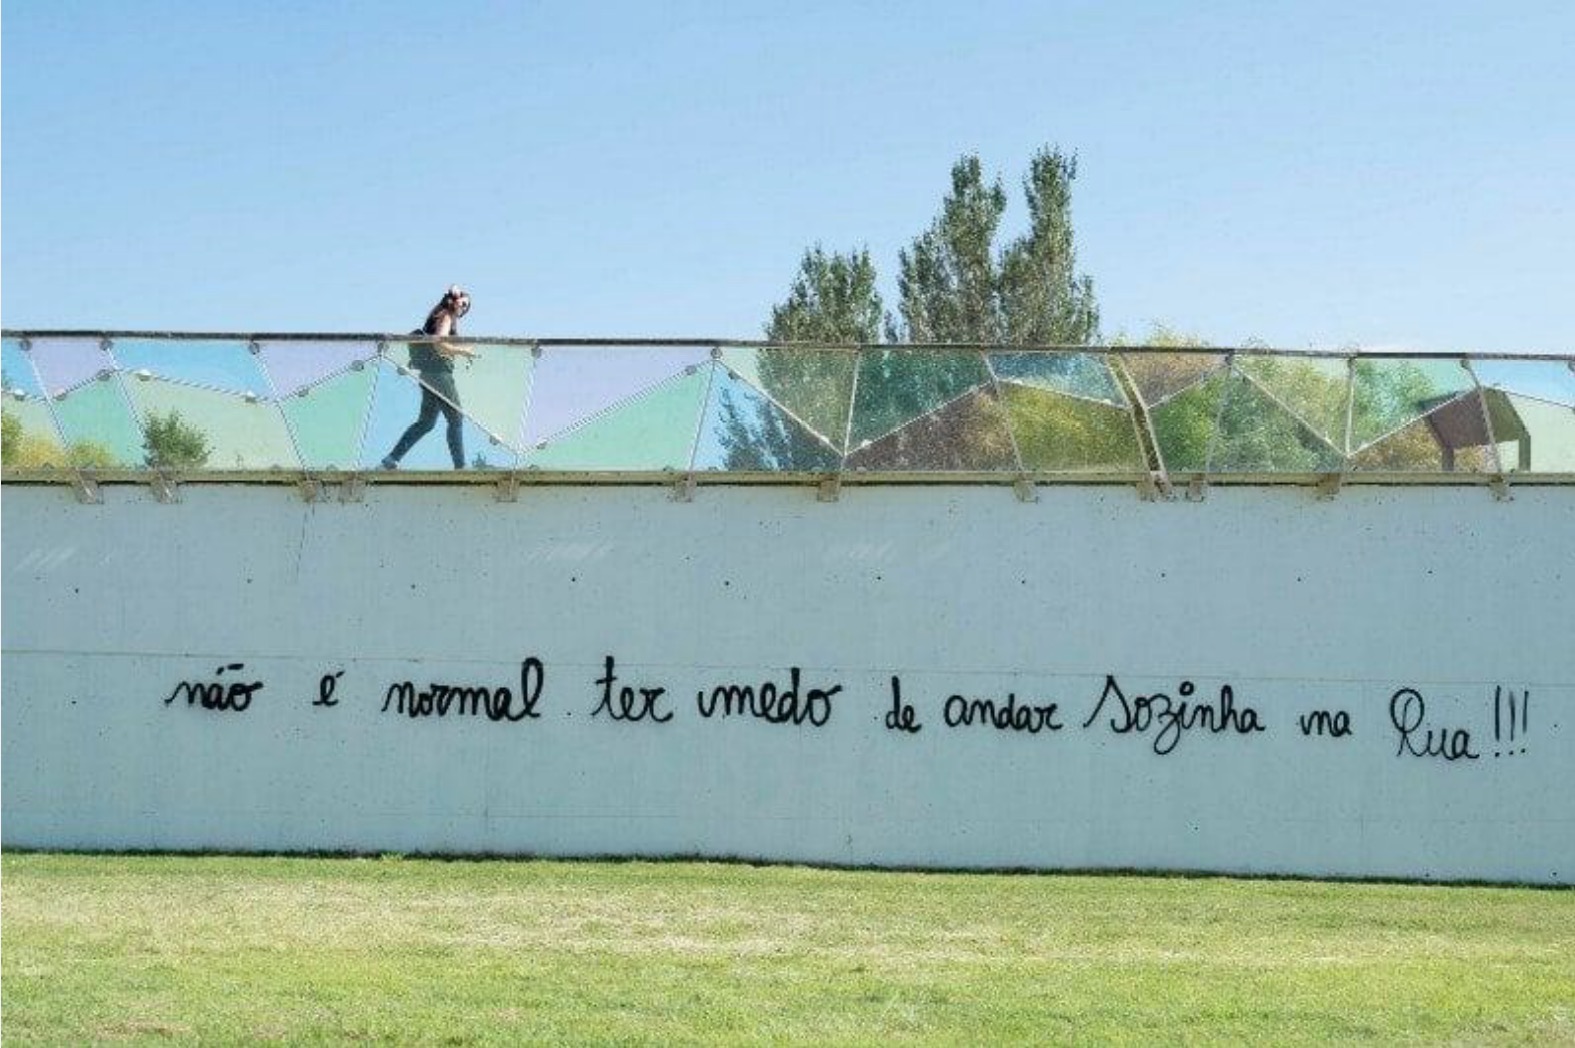 não é normal ter medo de andar Sozinha na Rua!!!